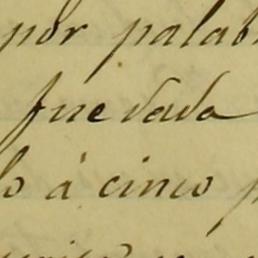 por palab
fue dada
lo à cinco p